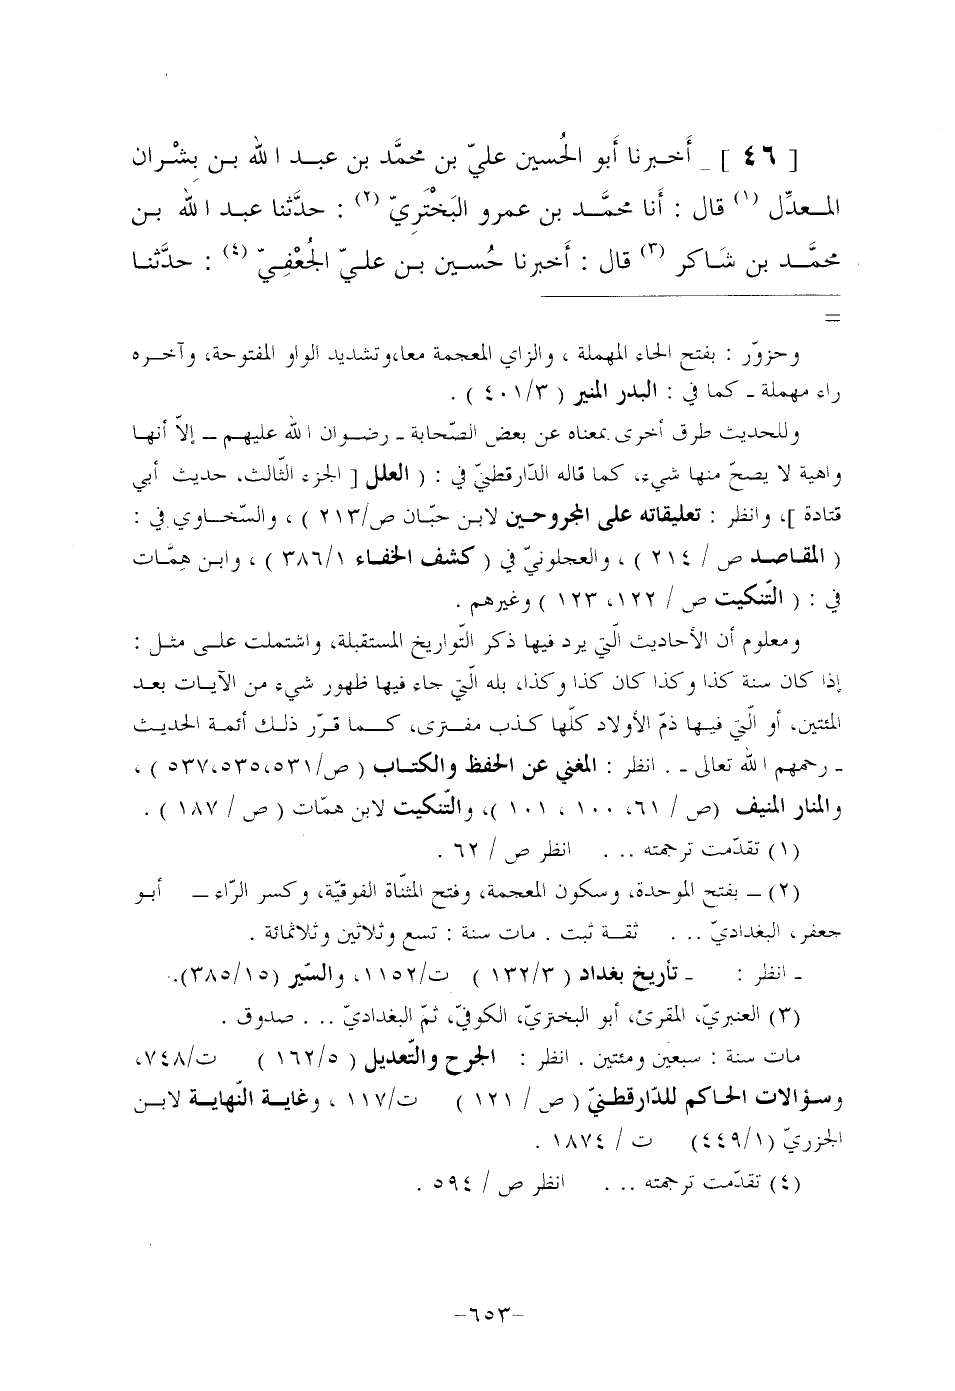 [ ٤٦ ] _ أَخـبرنا أَبو الحُسين عليّ بن محمَّد بن عبـد الله بـن بِشْـران
المـعدِّل (١) قال : أَنا محمَّـد بن عمرو البَخْتَرِيّ (٢) : حدَّثنا عبـد الله بـن
محمَّـد بن شَـاكر (٣) قال : أَخبرنا حُسـين بـن علـيّ الجُعْفِـيّ (٤) : حدَّثنـا
=
وحزوّر : بفتح الحاء المهملة ، والزاي المعجمة معا،وتشديد الواو المفتوحة، وآخـره
راء مهملة ـ كما في : البدر المنير ( ٤٠١/٣ ) .
وللحديث طرق أخرى بمعناه عن بعض الصّحابة ـ رضـوان الله عليهـم ــ إلاّ أنهـا
واهية لا يصحّ منها شيء، كما قاله الدّارقطنيّ في : ( العلل [ الجزء الثّالث، حديث أبي
قتادة ]، وانظر : تعليقاته على المجروحـين لابـن حبّـان ص/٢١٣ ) ، والسّخـاوي في :
( المقـاصـد ص / ٢١٤ ) ، والعجلونيّ في ( كشف الخفـاء ٣٨٦/١ ) ، وابـن هِمَّـات
في : ( التّنكيت ص / ١٢٢، ١٢٣ ) وغيرهم .
ومعلوم أن الأحاديث الّتي يرد فيها ذكر التّواريخ المستقبلة، واشتملت علـى مثـل :
إذا كان سنة كذا وكذا كان كذا وكذا، بله الّتي جاء فيها ظهور شيء من الآيـات بعـد
المئتين، أو الّتي فيهـا ذمّ الأولاد كلّها كـذب مفـترى، كـمـا قـرّر ذلـك أئمـة الحديـث
ـ رحمهم الله تعالى ـ . انظر : المغني عن الحفظ والكتـاب ( ص/٥٣١،٥٣٥،٥٣٧ ) ،
والمنار المنيف (ص / ٦١، ١٠٠ ، ١٠١ )، والتّنكيت لابن همّات ( ص / ١٨٧ ) .
(١) تقدّمت ترجمته ... انظر ص / ٦٢ .
(٢) ــ بفتح الموحدة، وسكون المعجمة، وفتح المثنّاة الفوقيّة، وكسر الرّاء ــ أبـو
جعفر، البغداديّ ... ثقـة ثبت . مات سنة : تسع وثلاثين وثلاثمائة .
ـ انظر : ـ تأريخ بغداد ( ١٣٢/٣ ) ت/١١٥٢، والسّير (٣٨٥/١٥).
(٣) العنبريّ، المقرئ، أبو البختريّ، الكوفيّ، ثمّ البغداديّ ... صدوق .
مات سنة : سبعين ومئتين . انظر : الجرح والتّعديل ( ١٦٢/٥ ) ت/٧٤٨،
وسـؤالات الحـاكم للدّارقطنيّ ( ص / ١٢١ ) ت/١١٧ ، وغايـة النّهايـة لابـن
الجزريّ (٤٤٩/١) ت / ١٨٧٤ .
(٤) تقدّمت ترجمته ... انظر ص / ٥٩٤ .
–٦٥٣–